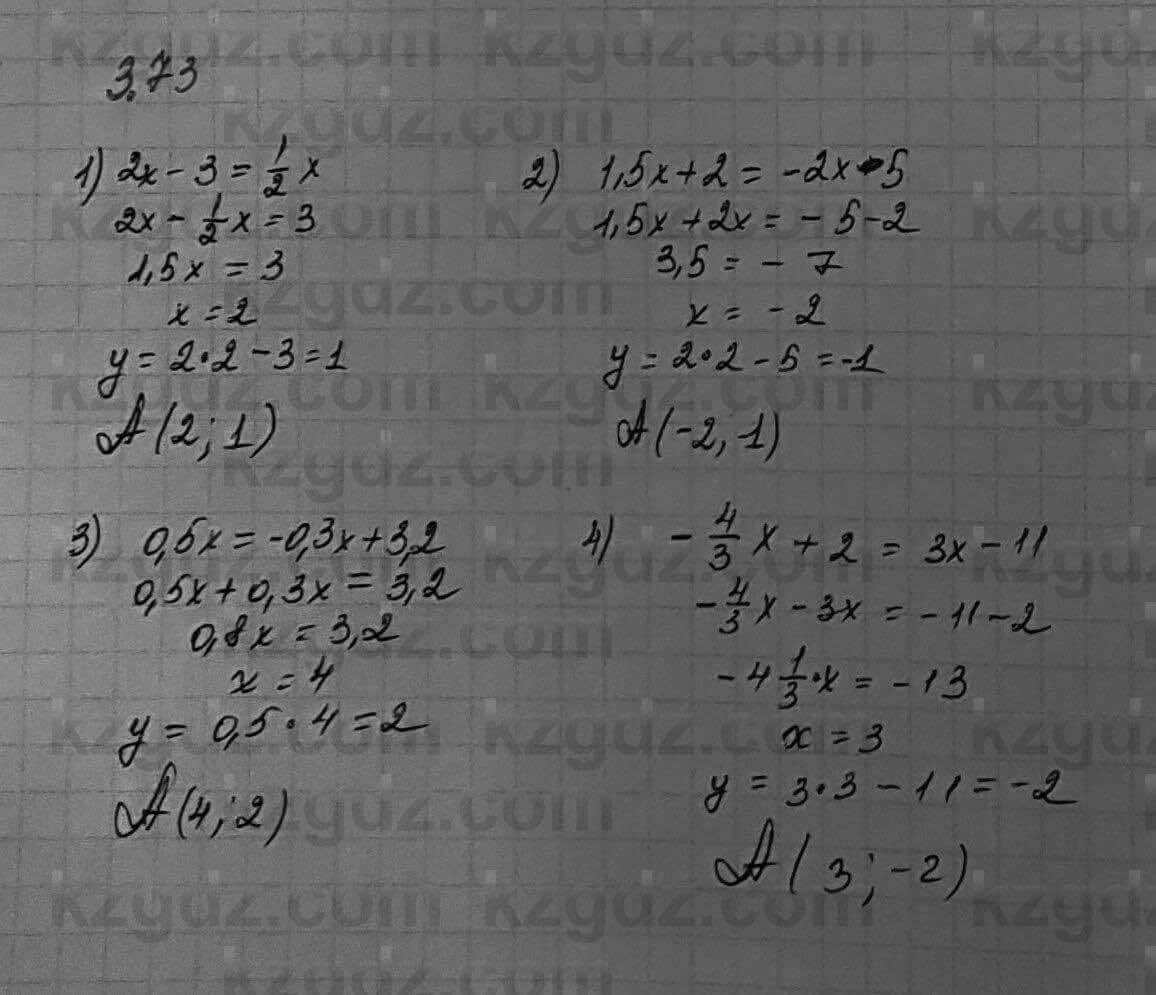 3.73
1) 2x - 3 = 1/2 x
2x - 1/2 x = 3
1,5x = 3
x = 2
y = 2·2 - 3 = 1
A(2; 1)
2) 1,5x + 2 = -2x - 5
1,5x + 2x = -5 - 2
3,5 = -7
x = -2
y = 2·2 - 5 = -1
A(-2, -1)
3) 0,5x = -0,3x + 3,2
0,5x + 0,3x = 3,2
0,8x = 3,2
x = 4
y = 0,5·4 = 2
A(4; 2)
4) -4/3 x + 2 = 3x - 11
-4/3 x - 3x = -11 - 2
-4 1/3·x = -13
x = 3
y = 3·3 - 11 = -2
A(3; -2)
kzgdz.com